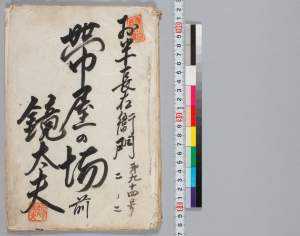 お半長右衛門
第九十四号
二ノ二
帯屋の場
前
鏡太夫